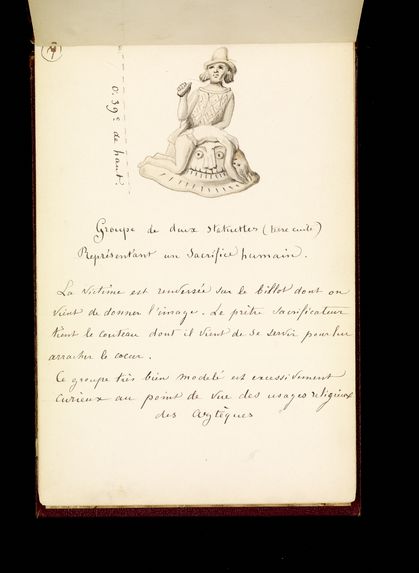 0.39ᶜ de haut.
Groupe de deux statuettes (terre cuite)
Représentant un Sacrifice humain.
La victime est renversée sur le billot dont on
vient de donner l'image. Le prêtre sacrificateur
tient le couteau dont il vient de se servir pour lui
arracher le coeur.
Ce groupe très bien modelé est excessivement
curieux au point de vue des usages religieux
des Aztèques